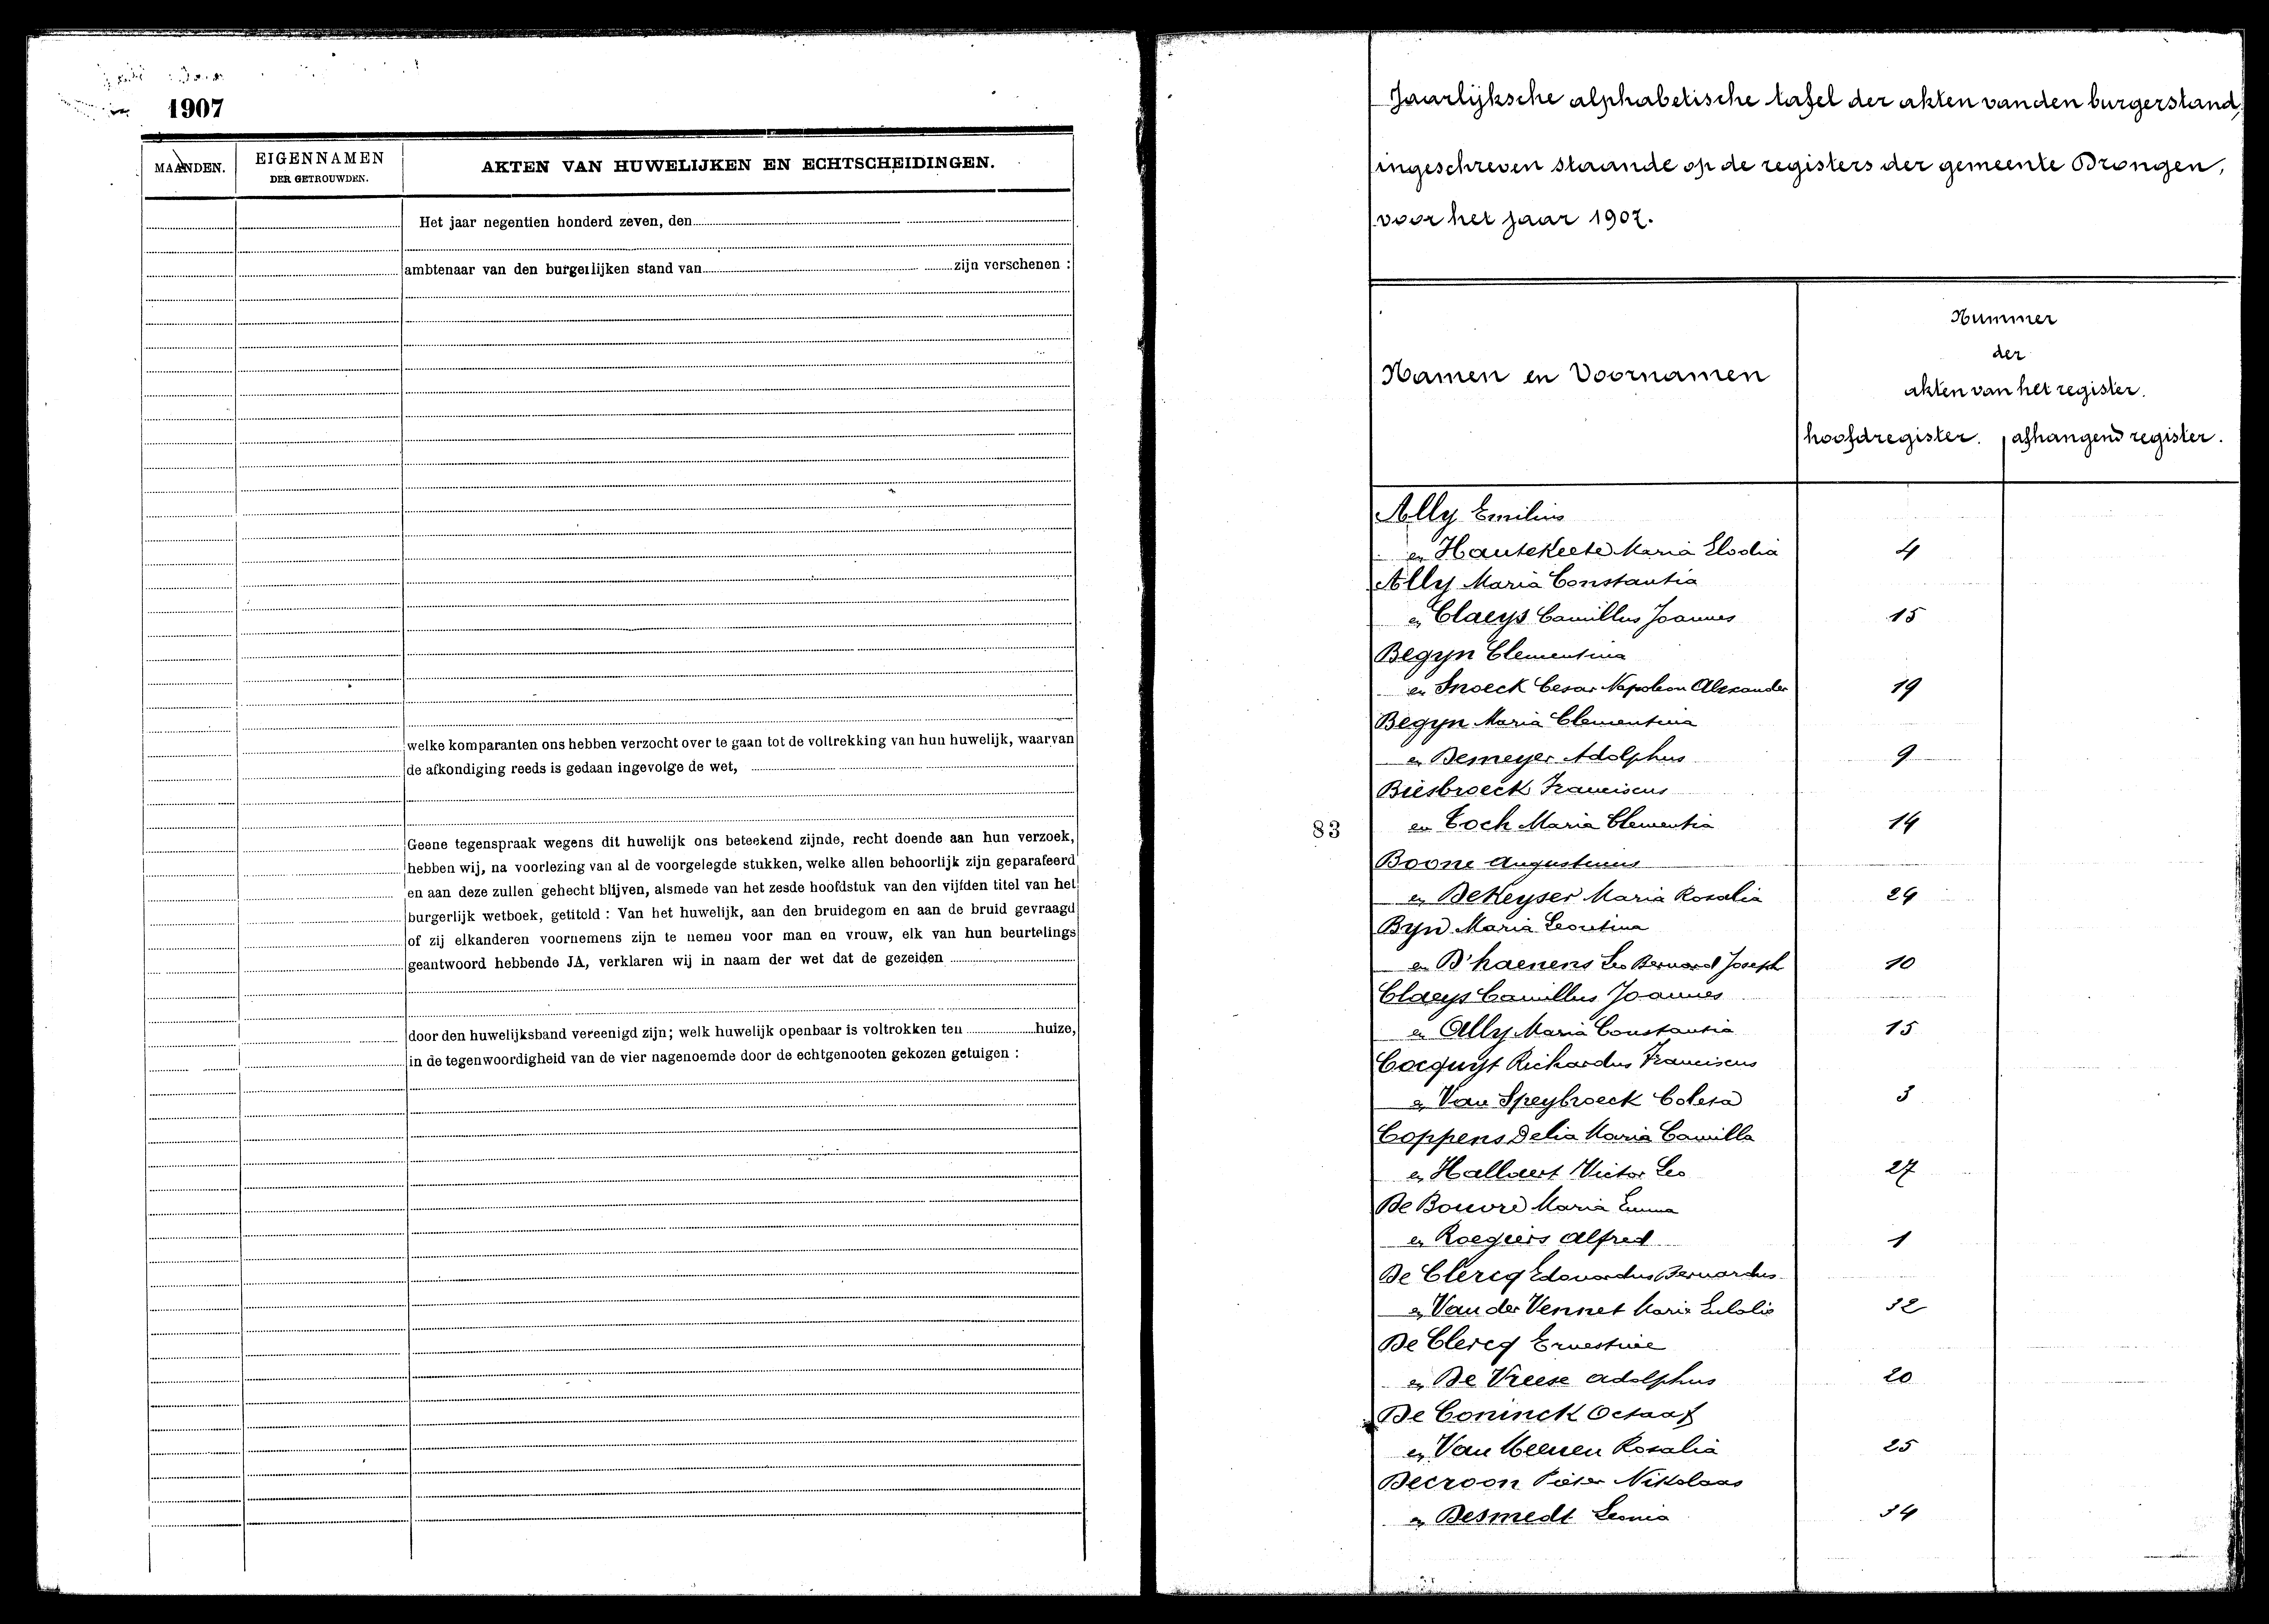 1907
MAANDEN.
EIGENNAMEN
DER GETROUWDEN.
AKTEN VAN HUWELIJKEN EN ECHTSCHEIDINGEN.
Het jaar negentien honderd zeven, den
ambtenaar van den burgerlijken stand van zijn verschenen :
welke komparanten ons hebben verzocht over te gaan tot de voltrekking van hun huwelijk, waarvan
de afkondiging reeds is gedaan ingevolge de wet,
Geene tegenspraak wegens dit huwelijk ons beteekend zijnde, recht doende aan hun verzoek,
hebben wij, na voorlezing van al de voorgelegde stukken, welke allen behoorlijk zijn geparafeerd
en aan deze zullen gehecht blijven, alsmede van het zesde hoofdstuk van den vijfden titel van het
burgerlijk wetboek, getiteld : Van het huwelijk, aan den bruidegom en aan de bruid gevraagd
of zij elkanderen voornemens zijn te nemen voor man en vrouw, elk van hun beurtelings
geantwoord hebbende JA, verklaren wij in naam der wet dat de gezeiden
door den huwelijksband vereenigd zijn; welk huwelijk openbaar is voltrokken ten huize,
in de tegenwoordigheid van de vier nagenoemde door de echtgenooten gekozen getuigen :
Jaarlijksche alphabetische tafel der akten van den burgerstand,
ingeschreven staande op de registers der gemeente Drongen,
voor het jaar 1907.
Namen en Voornamen
Nummer
der
akten van het register.
hoofdregister. afhangend register.
Ally Emilius
en Hautekeete Maria Elodia 4
Ally Maria Constantia
en Claeys Camillus Joannes 15
Begyn Clementina
en Snoeck Cesar Napoleon Alexander 19
Begyn Maria Clementina
en Demeyer Adolphus 9
Biesbroeck Franciscus
83
en Toch Maria Clementia 14
Boone Augustinus
en DeKeyser Maria Rosalia 24
Byn Maria Leontina
en D'haenens Leo Bernard Joseph 10
Claeys Camillus Joannes
en Ally Maria Constantia 15
Cocquyt Richardus Franciscus
en Van Speybroeck Coleta 3
Coppens Delia Maria Camilla
en Hallaert Victor Leo 27
De Bouvre Maria Emma
en Roegiers Alfred 1
De Clercq Edouardus Bernardus
en Van der Vennet Maria Eulalie 32
De Clercq Ernestine
en De Vreese Adolphus 20
De Coninck Octaaf
en Van Meenen Rosalia 25
Decroon Pieter Nikolaas
en Desmedt Leonia 34